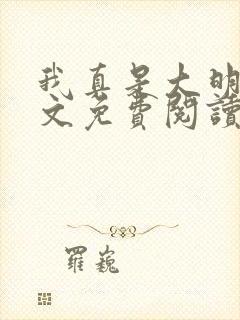 我真是大明
文免費閱讀
羅巍